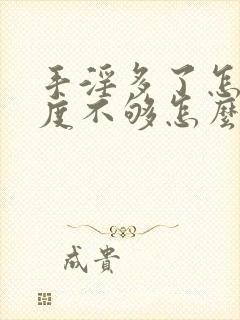 手淫多了怎
度不够怎麼
成貴